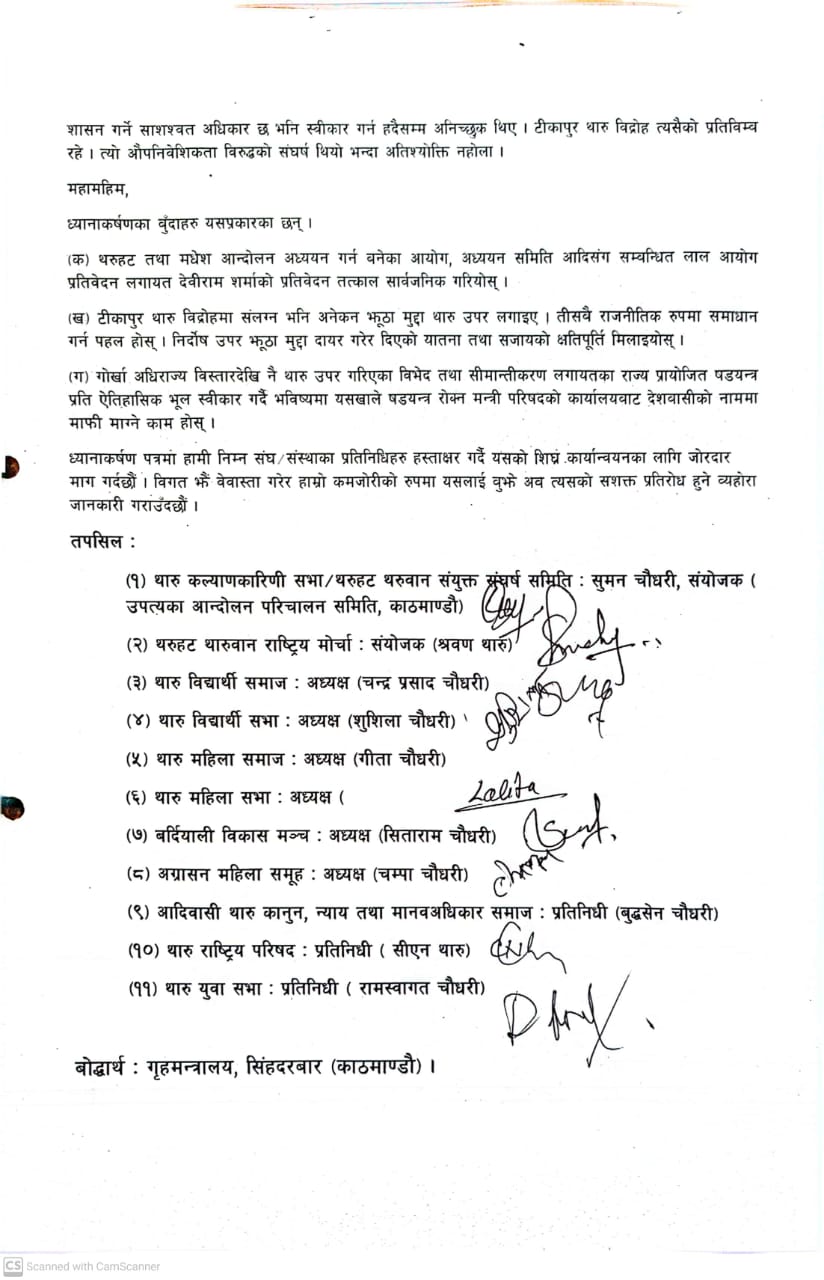 शासन गर्ने साशश्वत अधिकार छ भनि स्वीकार गर्न हदैसम्म अनिच्छुक थिए । टीकापुर थारु विद्रोह त्यसैको प्रतिविम्व
रहे । त्यो औपनिवेशिकता विरुद्धको संघर्ष थियो भन्दा अतिश्योक्ति नहोला ।
महामहिम,
ध्यानाकर्षणका बुँदाहरु यसप्रकारका छन् ।
(क) थरुहट तथा मधेश आन्दोलन अध्ययन गर्न बनेका आयोग, अध्ययन समिति आदिसंग सम्वन्धित लाल आयोग
प्रतिवेदन लगायत देवीराम शर्माको प्रतिवेदन तत्काल सार्वजनिक गरियोस् ।
(ख) टीकापुर थारु विद्रोहमा संलग्न भनि अनेकन झूठा मुद्दा थारु उपर लगाइए । तीसवै राजनीतिक रुपमा समाधान
गर्न पहल होस् । निर्दोष उपर झूठा मुद्दा दायर गरेर दिएको यातना तथा सजायको क्षतिपूर्ति मिलाइयोस् ।
(ग) गोर्खा अधिराज्य विस्तारदेखि नै थारु उपर गरिएका विभेद तथा सीमान्तीकरण लगायतका राज्य प्रायोजित षडयन्त्र
प्रति ऐतिहासिक भूल स्वीकार गर्दै भविष्यमा यसखाले षडयन्त्र रोक्न मन्त्री परिषदको कार्यालयवाट देशवासीको नाममा
माफी माग्ने काम होस् ।
ध्यानाकर्षण पत्रमा हामी निम्न संघ/संस्थाका प्रतिनिधिहरु हस्ताक्षर गर्दै यसको शिघ्र कार्यान्वयनका लागि जोरदार
माग गर्दछौं । विगत झैं वेवास्ता गरेर हाम्रो कमजोरीको रुपमा यसलाई वुझे अव त्यसको सशक्त प्रतिरोध हुने व्यहोरा
जानकारी गराउँदछौं ।
तपसिल :
(१) थारु कल्याणकारिणी सभा/थरुहट थरुवान संयुक्त संघर्ष समिति : सुमन चौधरी, संयोजक (
उपत्यका आन्दोलन परिचालन समिति, काठमाण्डौ)
(२) थरुहट थारुवान राष्ट्रिय मोर्चा : संयोजक (श्रवण थारु)
(३) थारु विद्यार्थी समाज : अध्यक्ष (चन्द्र प्रसाद चौधरी)
(४) थारु विद्यार्थी सभा : अध्यक्ष (शुशिला चौधरी)
(५) थारु महिला समाज : अध्यक्ष (गीता चौधरी)
(६) थारु महिला सभा : अध्यक्ष ( Lalita
(७) बर्दियाली विकास मञ्च : अध्यक्ष (सिताराम चौधरी)
(८) अग्रासन महिला समूह : अध्यक्ष (चम्पा चौधरी)
(९) आदिवासी थारु कानुन, न्याय तथा मानवअधिकार समाज : प्रतिनिधी (बुद्धसेन चौधरी)
(१०) थारु राष्ट्रिय परिषद : प्रतिनिधी ( सीएन थारु)
(११) थारु युवा सभा : प्रतिनिधी ( रामस्वागत चौधरी)
बोद्धार्थ : गृहमन्त्रालय, सिंहदरबार (काठमाण्डौ) ।
CS Scanned with CamScanner